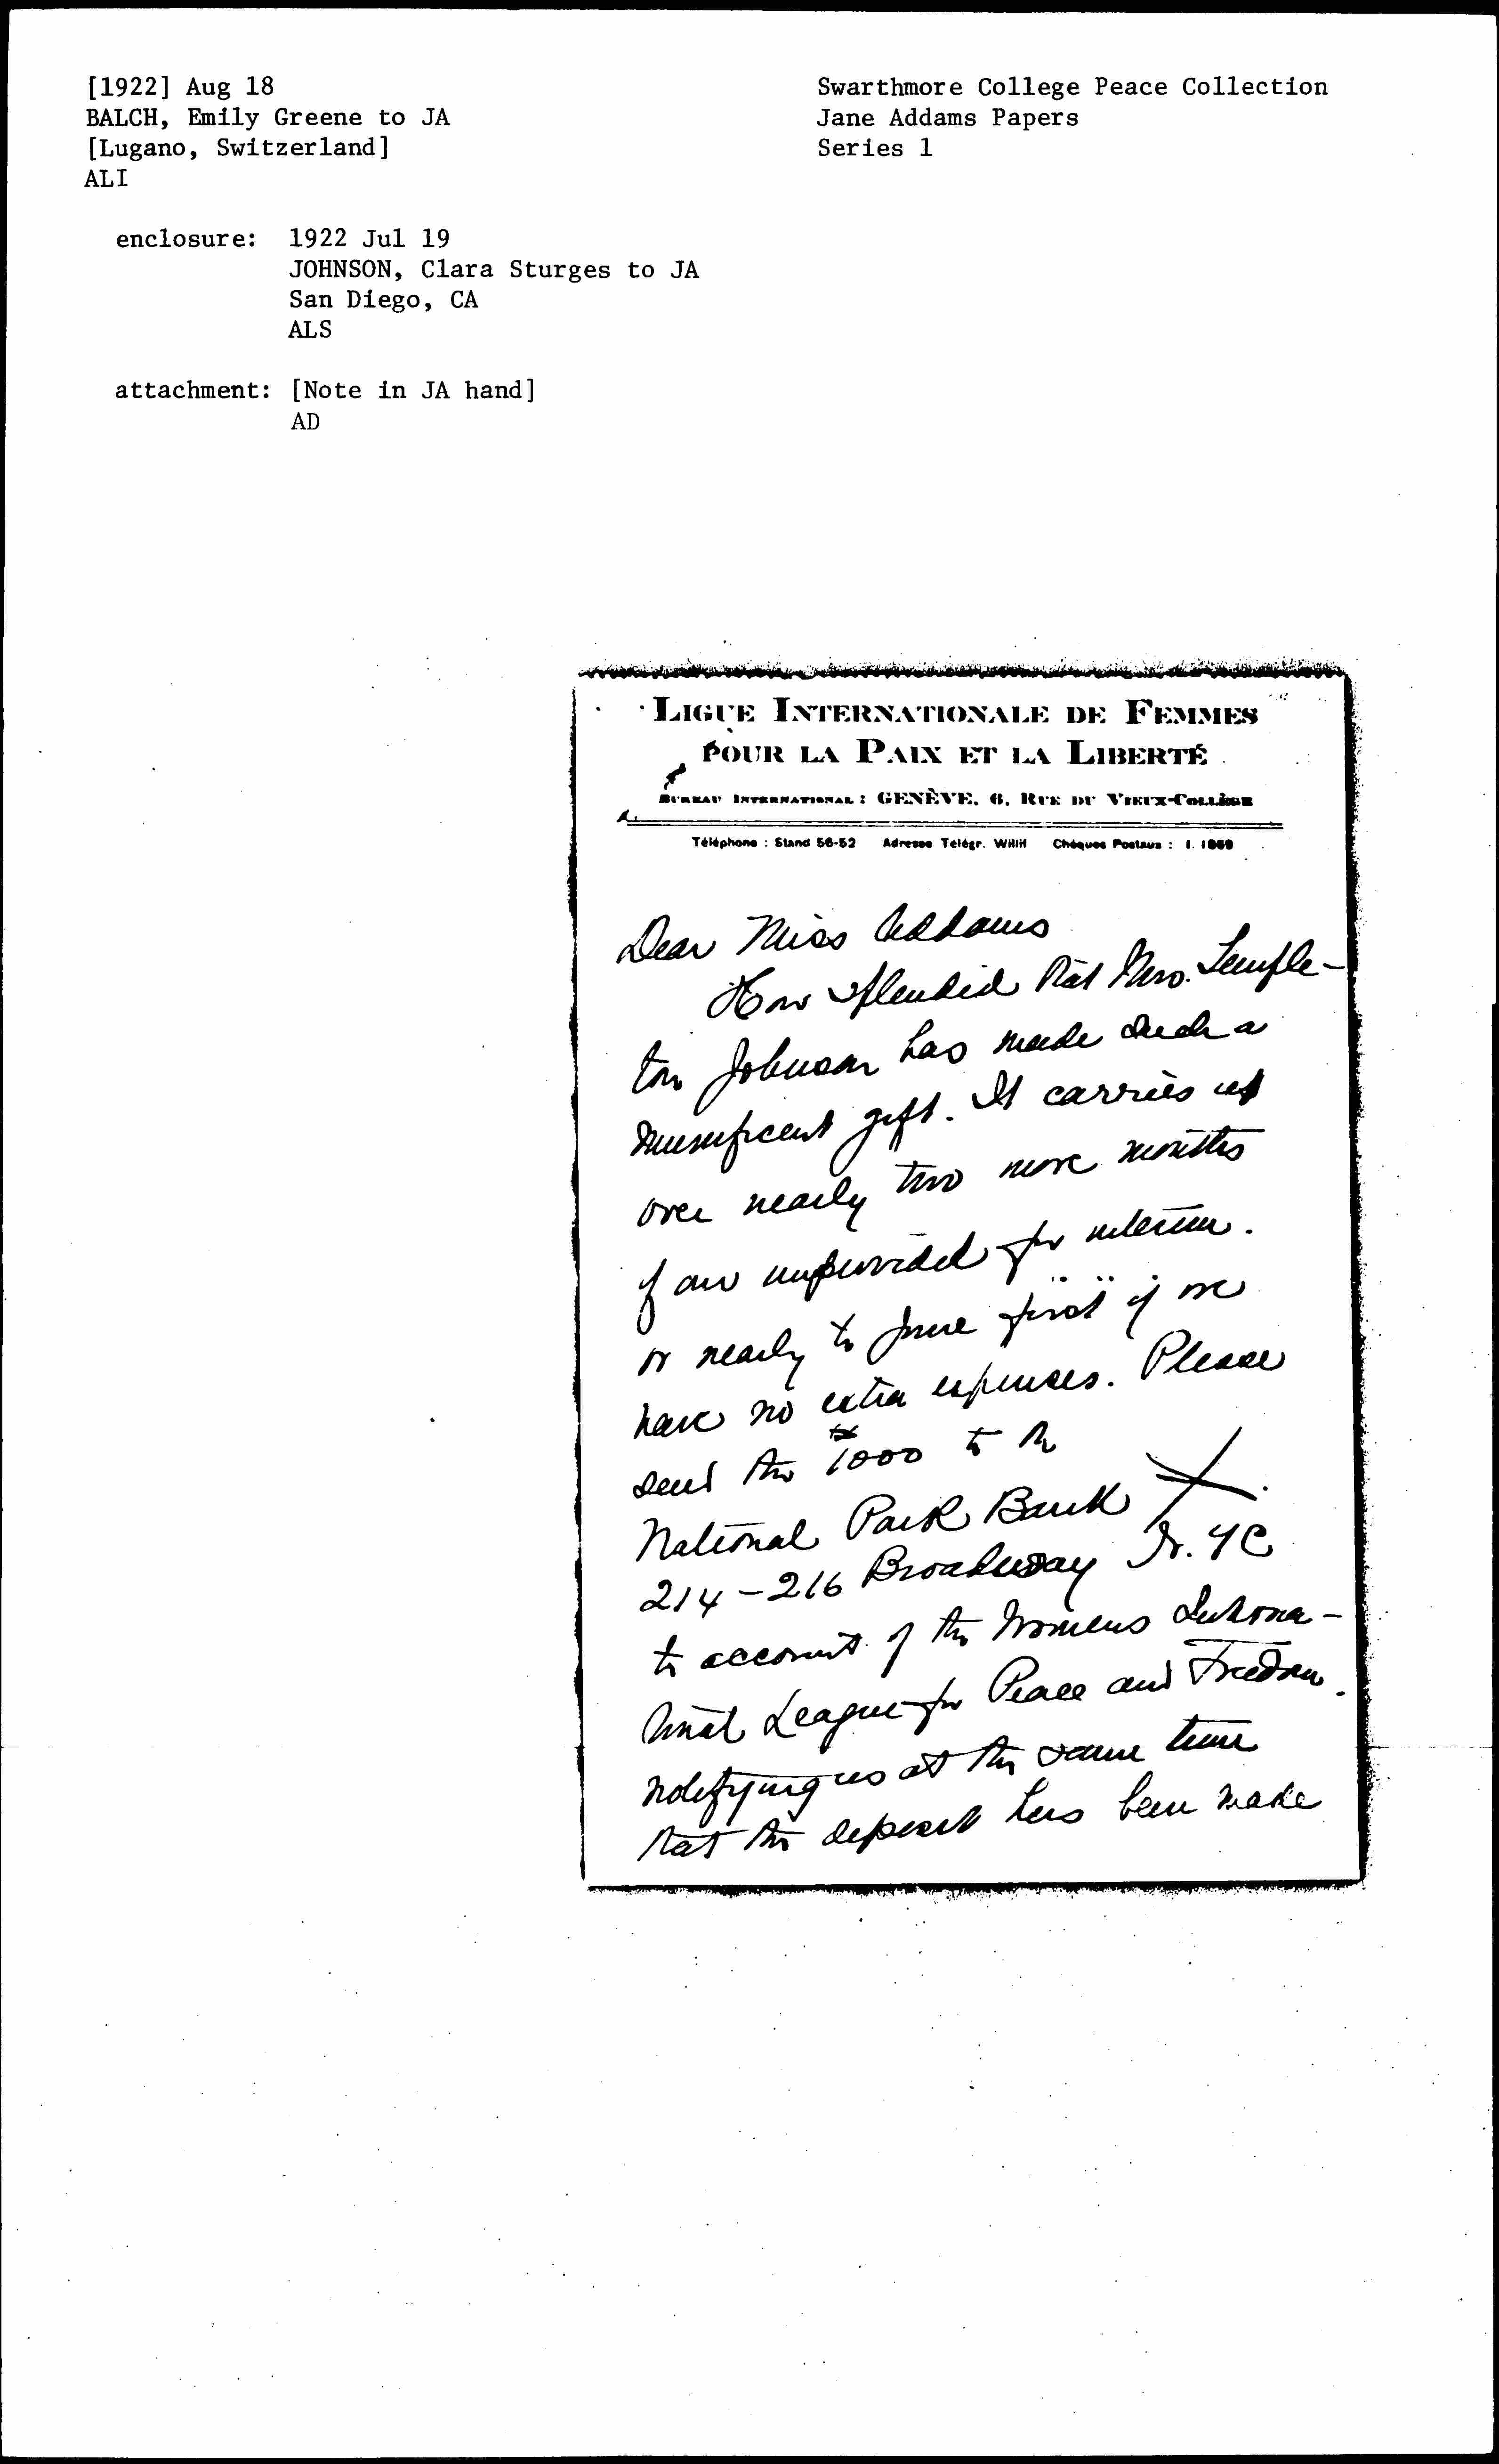 [1922] Aug 18
BALCH, Emily Greene to JA
[Lugano, Switzerland]
ALI
Swarthmore College Peace Collection
Jane Addams Papers
Series 1
enclosure: 1922 Jul 19
JOHNSON, Clara Sturges to JA
San Diego, CA
ALS
attachment: [Note in JA hand]
AD
LIGUE INTERNATIONALE DE FEMMES
POUR LA PAIX ET LA LIBERTÉ
BUREAU INTERNATIONAL : GENÈVE, 6, RUE DU VIEUX-COLLÈGE
Téléphone : Stand 56-52 Adresse Telégr. Willif Chèques Postaux : I. 1869
Dear Miss Addams
How splendid that Mrs. Temple-
ton Johnson has made such a
munificent gift. It carries us
over nearly two more months
of our unprovided for interim.
or nearly to June first if we
have no extra expenses. Please
send the 1000 to the
National Park Bank
214-216 Broadway N.Y C
to account of the Womens Interna-
tional League for Peace and Freedom.
notifying us at the same time
that the deposit has been made